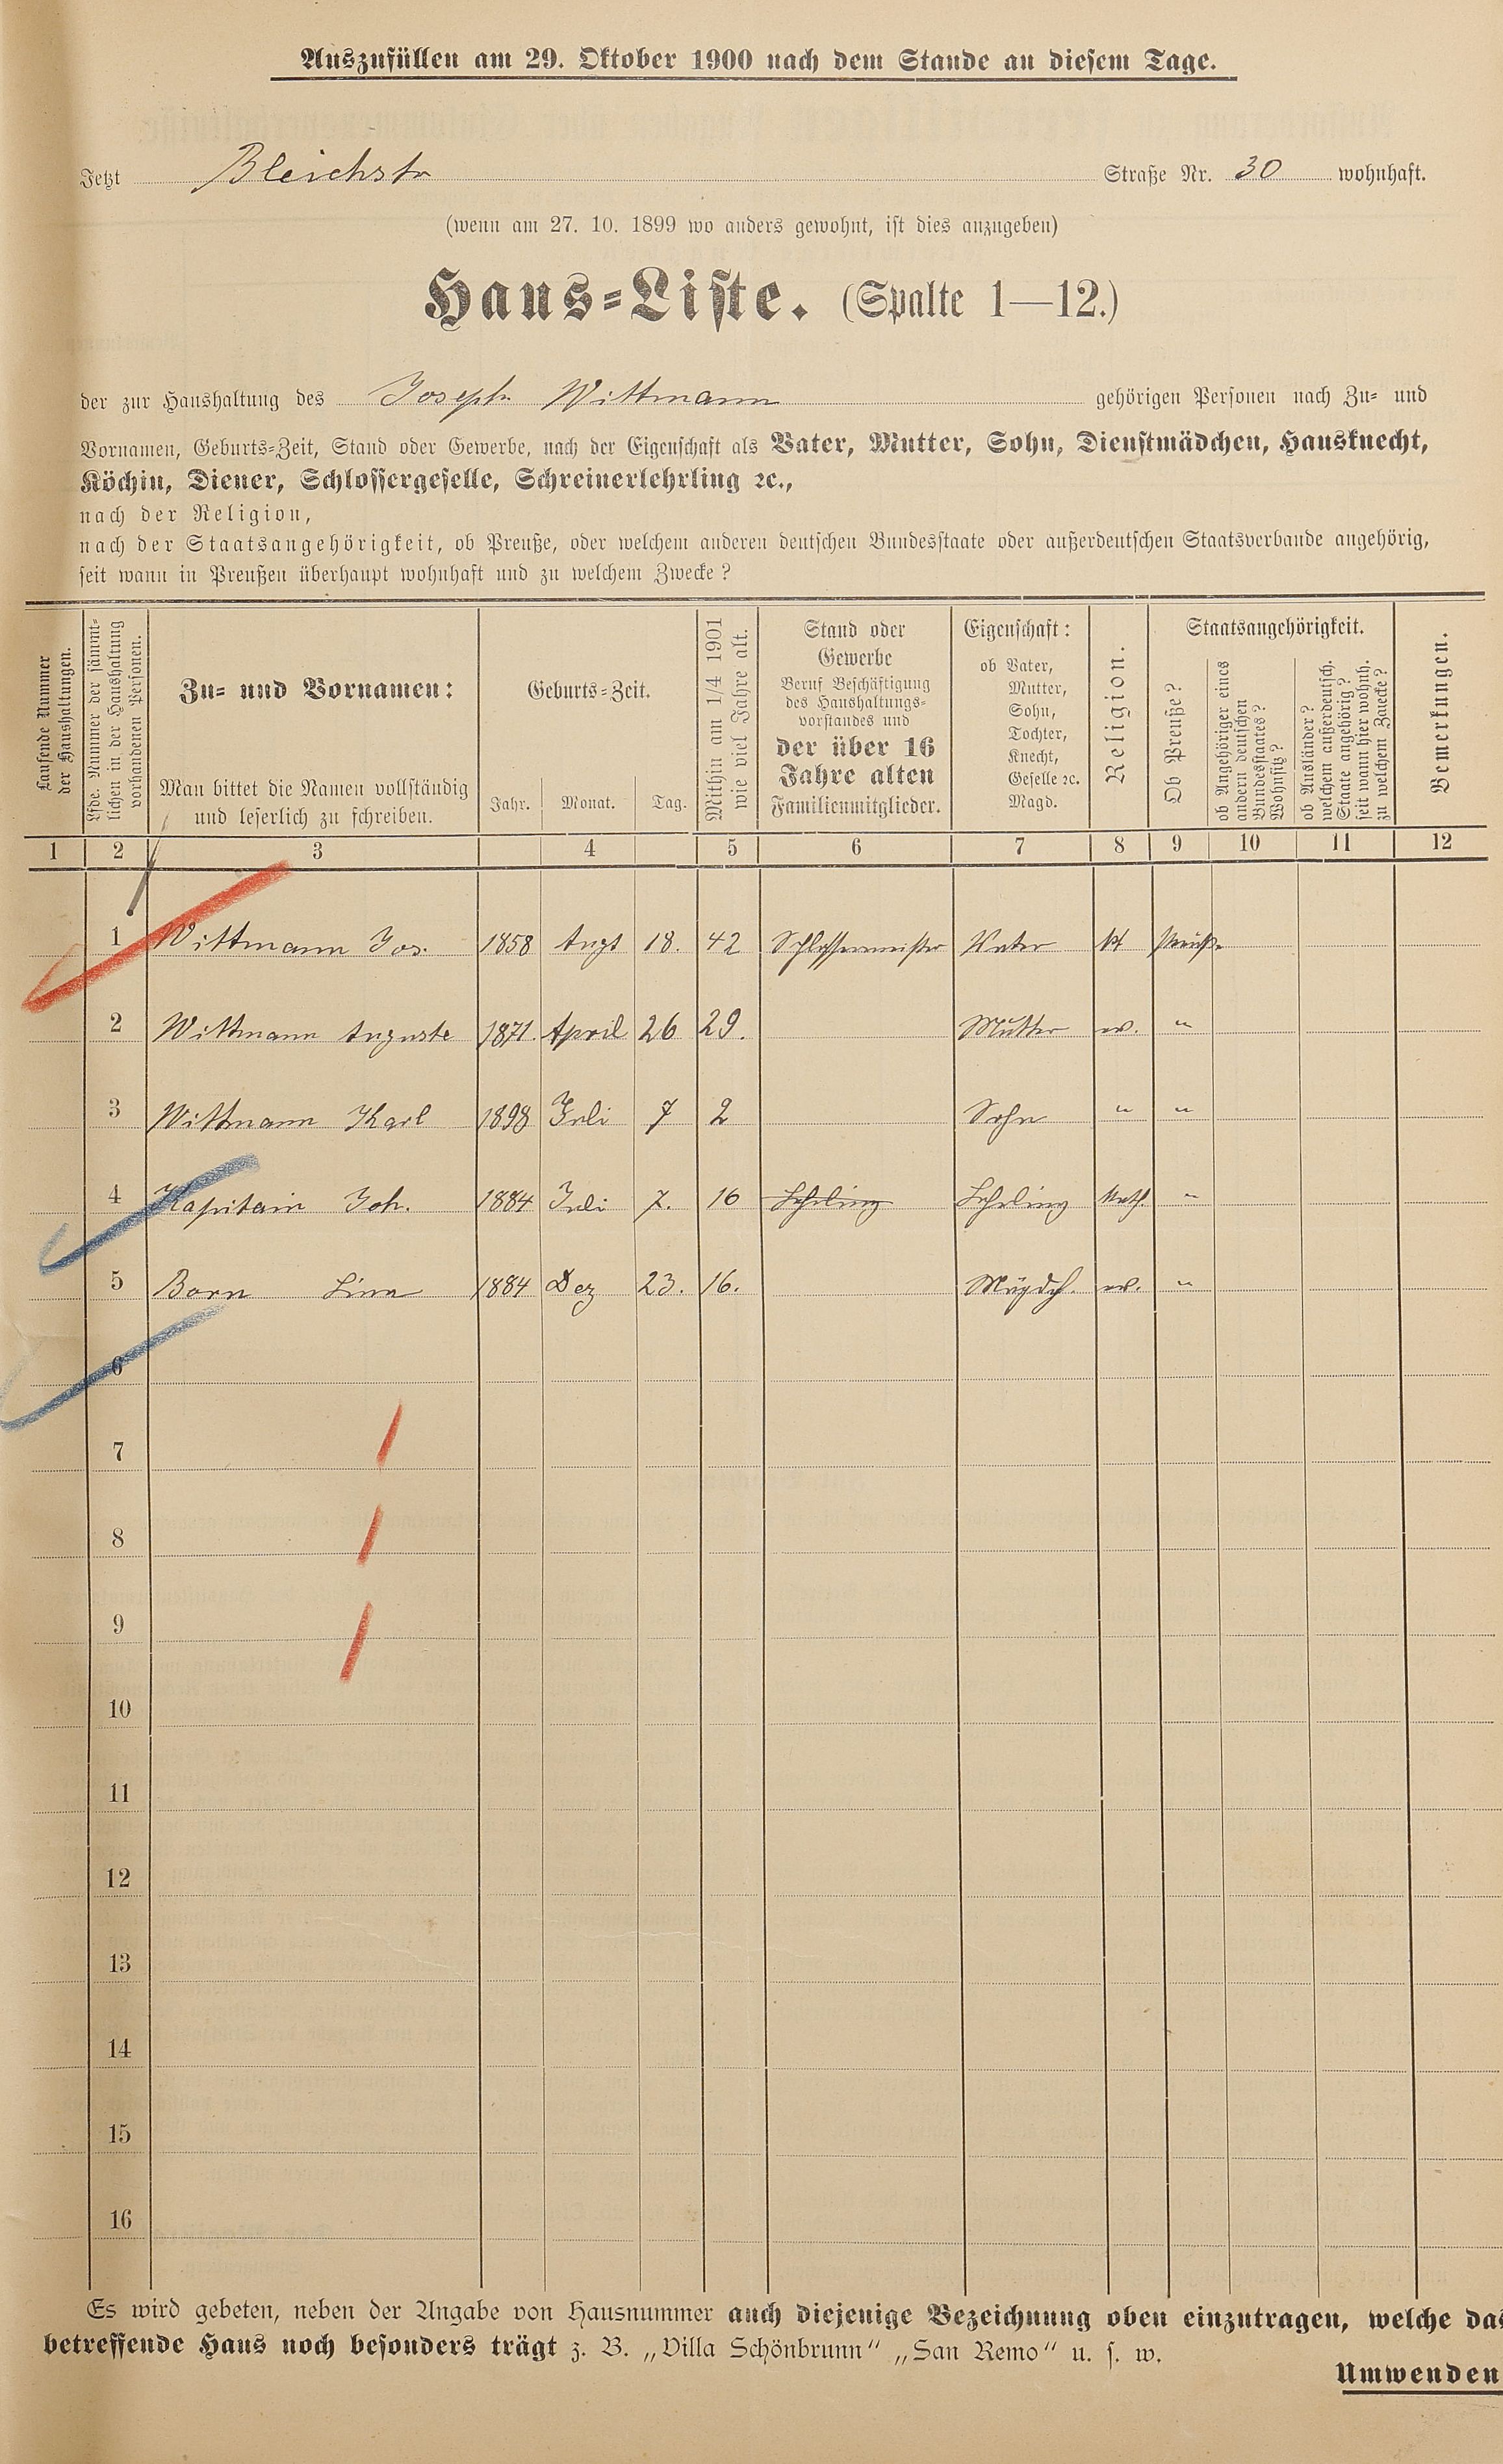 Auszufüllen am 29. Oktober 1900 nach dem Stande an diesem Tage.
Jetzt Bleichstr Straße Nr. 30 wohnhaft.
(wenn am 27. 10. 1899 wo anders gewohnt, ist dies anzugeben)
Haus-Liste. (Spalte 1—12.)
der zur Haushaltung des Joseph Wittmann gehörigen Personen nach Zu- und
Vornamen, Geburts-Zeit, Stand oder Gewerbe, nach der Eigenschaft als Vater, Mutter, Sohn, Dienstmädchen, Hausknecht,
Köchin, Diener, Schlossergeselle, Schreinerlehrling ꝛc.,
nach der Religion,
nach der Staatsangehörigkeit, ob Preuße, oder welchem anderen deutschen Bundesstaate oder außerdeutschen Staatsverbande angehörig,
seit wann in Preußen überhaupt wohnhaft und zu welchem Zwecke?
Laufende Nummer
der Haushaltungen.
Lfde. Nummer der sämmt-
lichen in der Haushaltung
vorhandenen Personen.
Zu- und Vornamen:
Man bittet die Namen vollständig
und leserlich zu schreiben.
Geburts-Zeit.
Jahr. Monat. Tag.
Mithin am 1/4 1901
wie viel Jahre alt.
Stand oder
Gewerbe
Beruf Beschäftigung
des Haushaltungs-
vorstandes und
der über 16
Jahre alten
Familienmitglieder.
Eigenschaft:
ob Vater,
Mutter,
Sohn,
Tochter,
Knecht,
Geselle ꝛc.
Magd.
Religion.
Staatsangehörigkeit.
Ob Preuße?
ob Angehöriger eines
andern deutschen
Bundesstaates?
Wohnsitz?
ob Ausländer?
welchem außerdeutsch.
Staate angehörig?
seit wann hier wohnh.
zu welchem Zwecke?
Bemerkungen.
1 2 3 4 5 6 7 8 9 10 11 12
1 Wittmann Jos. 1858 Augt 18. 42 Schlossermeister Vater kt Preuße
2 Wittmann Auguste 1871. April 26 29. Mutter ev. "
3 Wittmann Karl 1898 Juli 7 2 Sohn " "
4 Kapitain Joh. 1884 Juli 7. 16 Lehrling Lehrling kath. "
5 Born Lina 1884 Dez 23. 16. Mägdch. ev. "
6
7
8
9
10
11
12
13
14
15
16
Es wird gebeten, neben der Angabe von Hausnummer auch diejenige Bezeichnung oben einzutragen, welche das
betreffende Haus noch besonders trägt z. B. „Villa Schönbrunn" „San Remo" u. s. w.
Umwenden